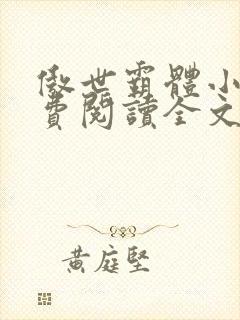 傲世霸體小
費閱讀全文
黃庭堅